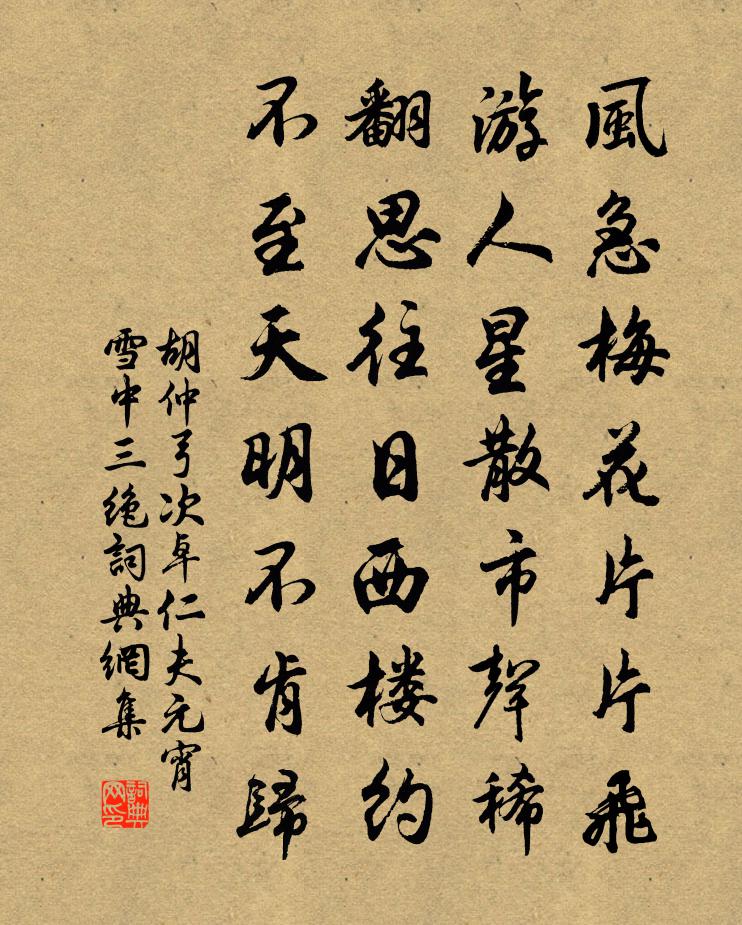 風急梅花片片飛
游人星散市聲稀
翻思往日西楼約
不至天明不肯歸
胡仲弓次卓仁夫元宵
雪中三絶詞典網集
詞典网印